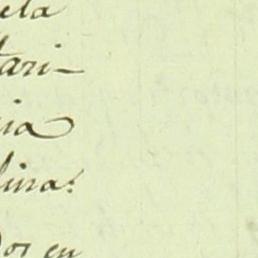 ela
tari-
cia
lina:
dos en